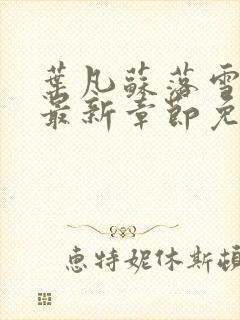 葉凡蘇落雪
最新章節免
惠特妮休斯頓